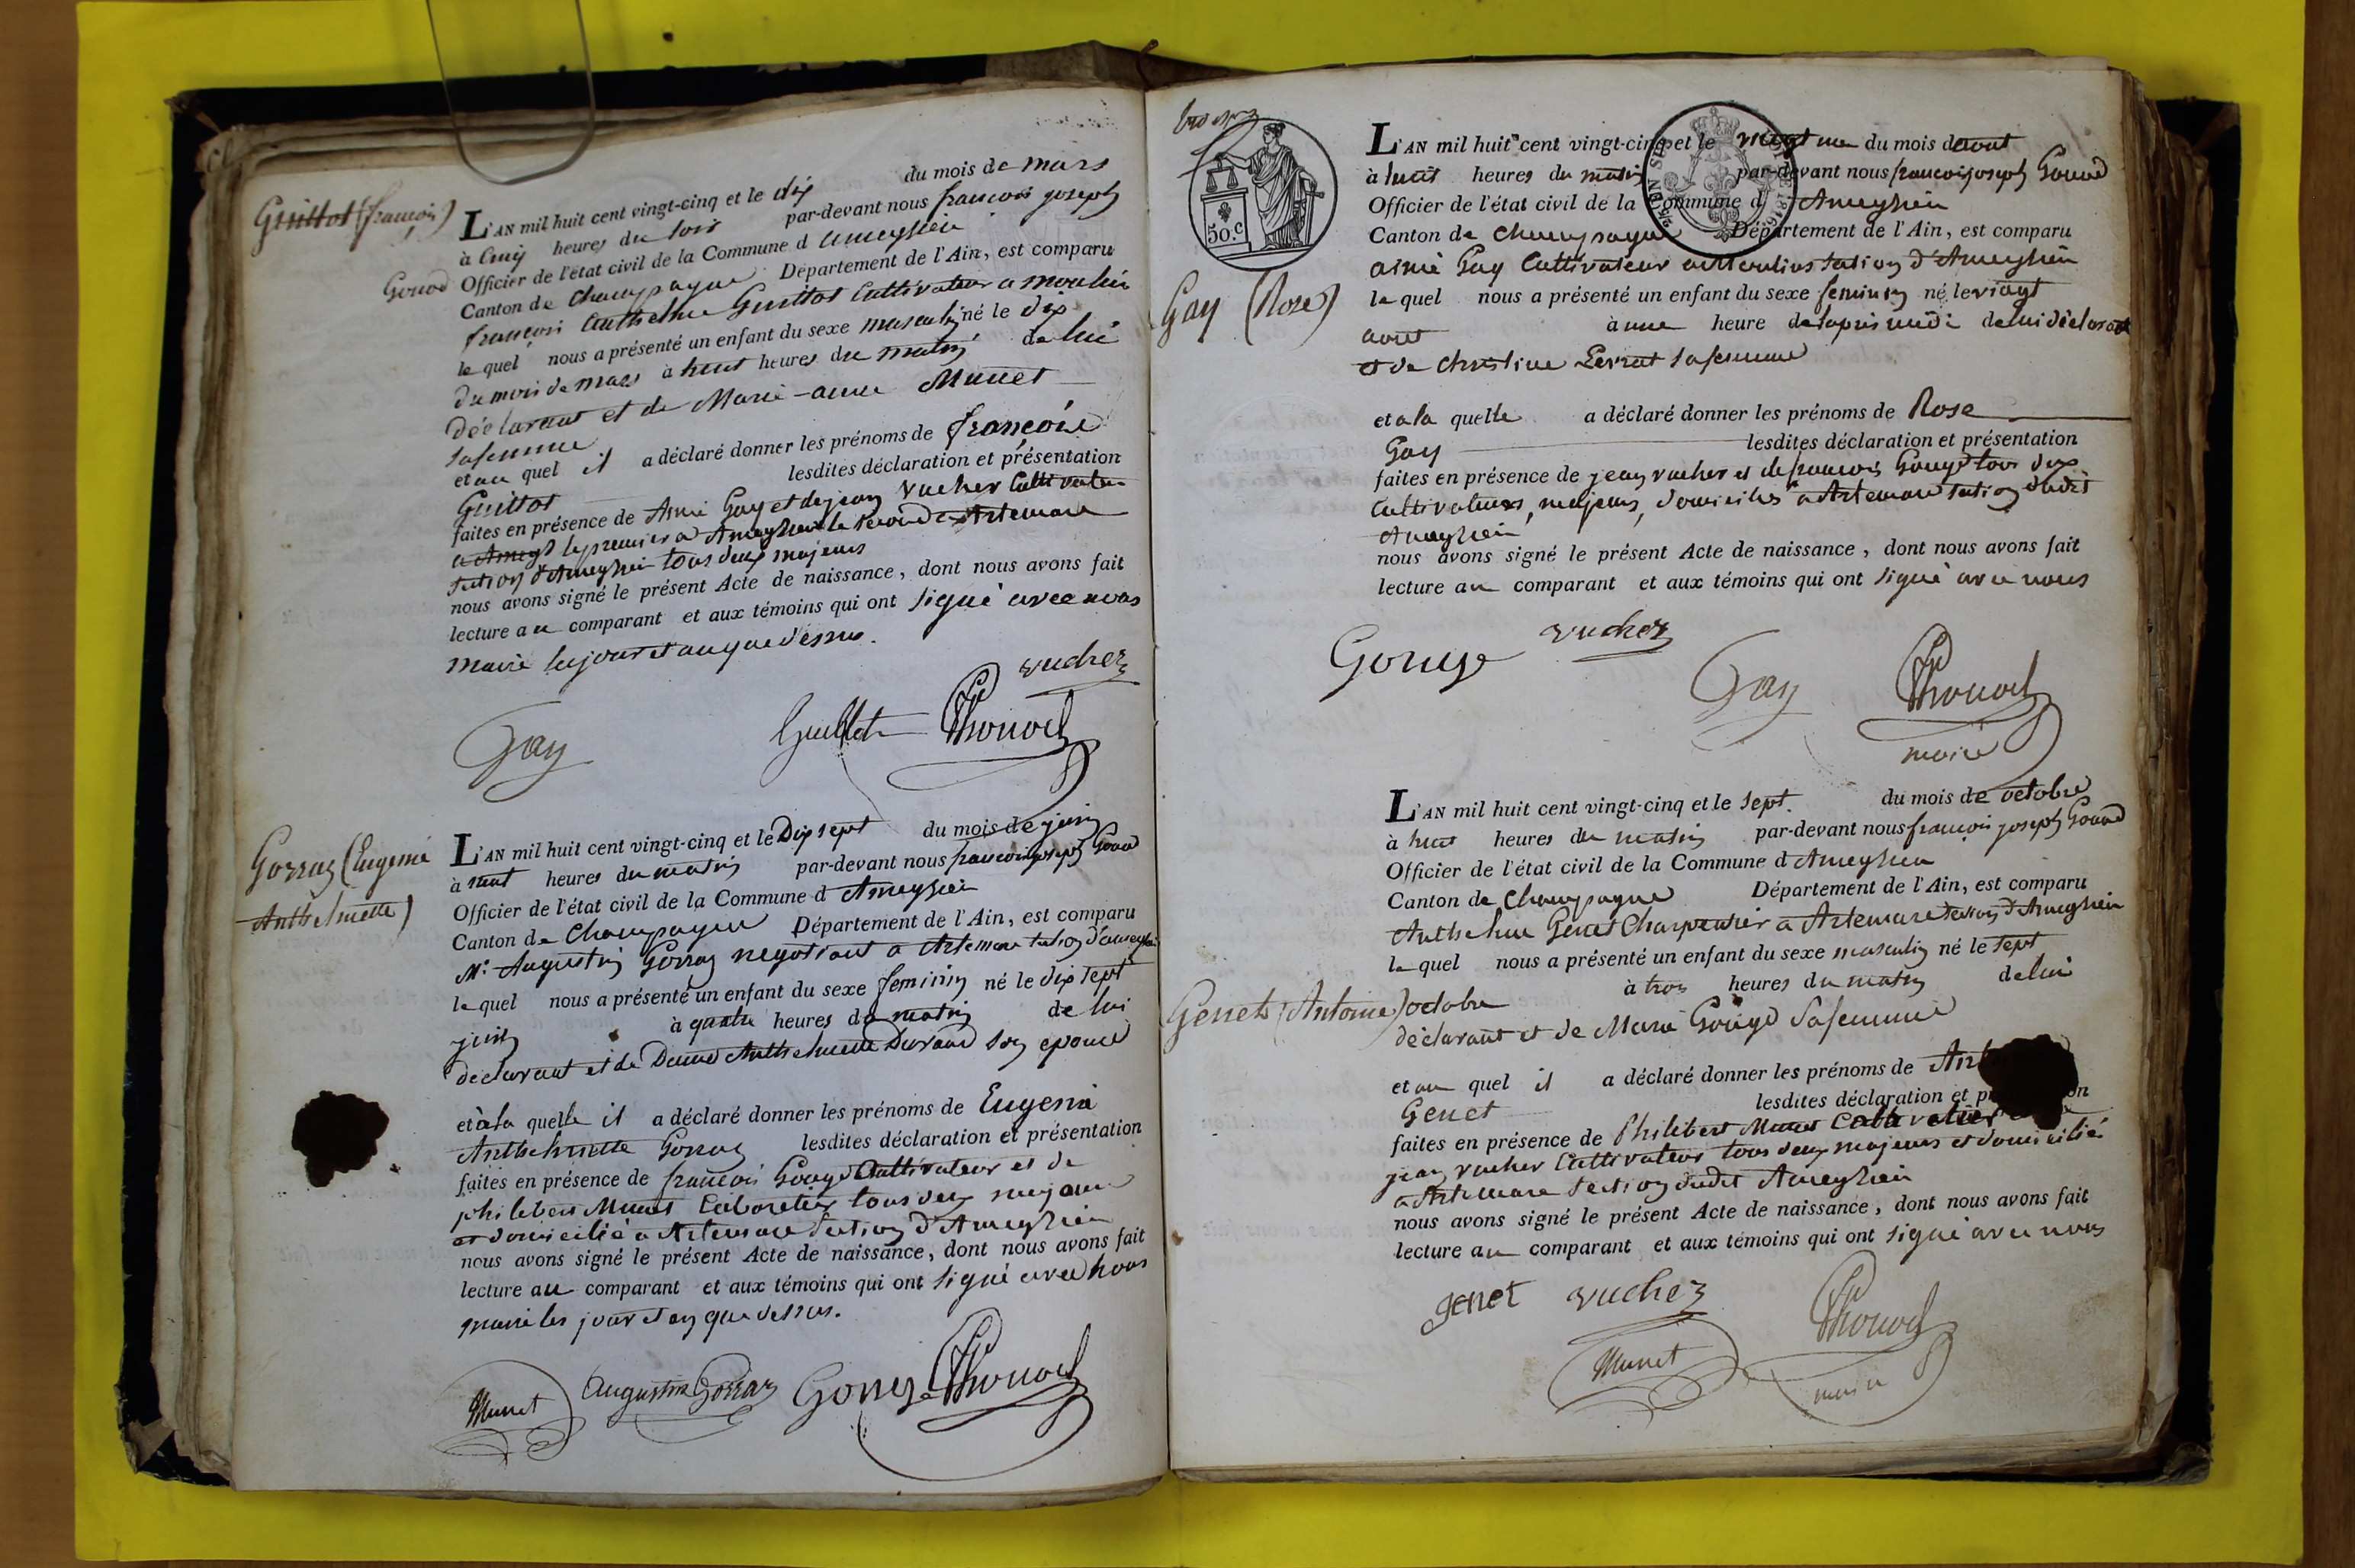 Guittot (françois)
L'AN mil huit cent vingt-cinq et le dix du mois de mars
à cinq heures du soir par-devant nous francois joseph
Gonod Officier de l'état civil de la Commune d ameysieu
Canton de Champagne Département de l'Ain, est comparu
françois Anthelme Guittot Cultivateur a moulin
le quel nous a présenté un enfant du sexe masculin né le dix
du mois de mars à huit heures du matin de lui
déclarant et de Marie-anne Munet
sa femme
et au quel il a déclaré donner les prénoms de francois
Guittot lesdites déclaration et présentation
faites en présence de Aimé Gay et de jean vucher Cultivateur
le premier a Ameyzieu le second a Artemare
section d'Ameyzieu tous deux majeurs
nous avons signé le présent Acte de naissance, dont nous avons fait
lecture au comparant et aux témoins qui ont signé avec nous
maire les jour et an que dessus.
vucher
Gay Guillot
Gorraz (Eugenie
Anthelmette)
L'AN mil huit cent vingt-cinq et le Dix sept du mois de juin
à huit heures du matin par-devant nous francois joseph Gonod
Officier de l'état civil de la Commune d Ameysieu
Canton de Champagne Département de l'Ain, est comparu
Mr. Augustin Gorraz negotiant a Artemare section d'ameyzieu
le quel nous a présenté un enfant du sexe feminin né le dix sept
juin à quatre heures du matin de lui
déclarant et de Dame Anthelmette Durand son epouse
et à la quelle il a déclaré donner les prénoms de Eugenie
Anthelmette Gorraz lesdites déclaration et présentation
faites en présence de francois Gouge Cultivateur et de
philibert Munet Cabaretier tous deux majeurs
et domicilié a Artemare section d'Ameyzieu
nous avons signé le présent Acte de naissance, dont nous avons fait
lecture au comparant et aux témoins qui ont signé avec nous
maire les jour et an que dessus.
Munet Augustin Gorraz Gouge
50.c
Gay (Rose)
L'AN mil huit cent vingt-cinq et le vingt un du mois d aout
à huit heures du matin par-devant nous francois joseph Gonod
Officier de l'état civil de la Commune d Ameyzieu
Canton de Champagne Département de l'Ain, est comparu
aimé Gay Cultivateur au moulin section d'Ameyzieu
le quel nous a présenté un enfant du sexe feminin né le vingt
aout à une heure de lapres midi de lui déclarant
et de Christine Perrat sa femme
et a la quelle a déclaré donner les prénoms de Rose
Gay lesdites déclaration et présentation
faites en présence de jean vucher et de francois Gouge tous deux
Cultivateurs, majeurs, domiciliés a Artemare section dudit
Ameyzieu
nous avons signé le présent Acte de naissance, dont nous avons fait
lecture au comparant et aux témoins qui ont signé avec nous
Gouge vucher
Gay
maire
L'AN mil huit cent vingt-cinq et le sept du mois de octobre
à huit heures du matin par-devant nous francois joseph Gonod
Officier de l'état civil de la Commune d Ameyzieu
Canton de Champagne Département de l'Ain, est comparu
Anthelme Genet Charpentier a Artemare section d'Ameyzieu
le quel nous a présenté un enfant du sexe masculin né le sept
Genet (Antoine) octobre à trois heures du matin de lui
déclarant et de Marie Gouge sa femme
et au quel il a déclaré donner les prénoms de Ant
Genet lesdites déclaration et
faites en présence de Philibert Munet
jean vucher Cultivateur tous deux majeurs et domiciliés
a Artemare section dudit Ameyzieu
nous avons signé le présent Acte de naissance, dont nous avons fait
lecture au comparant et aux témoins qui ont signé avec nous
genet vucher
Munet
maire